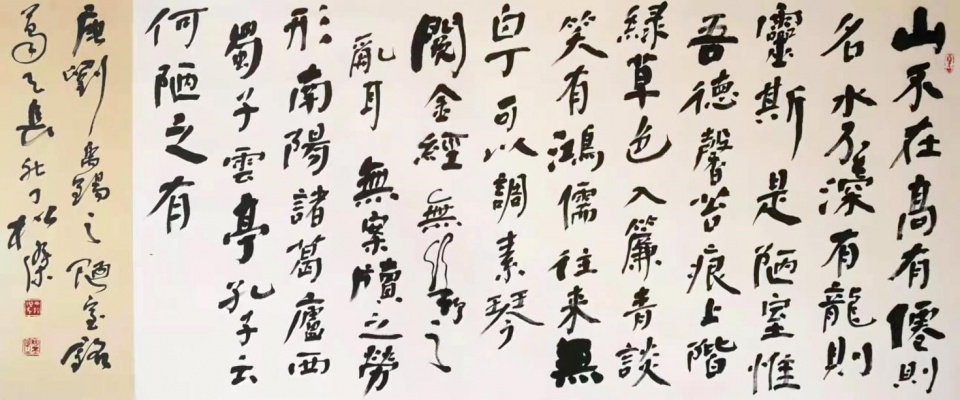 山不在高有僊則
名水不深有龍則
靈斯是陋室惟
吾德馨苔痕上階
綠草色入簾青談
笑有鴻儒往來無
白丁可以調素琴
閱金經無絲竹之
亂耳無案牘之勞
形南陽諸葛廬西
蜀子雲亭孔子云
何陋之有
唐劉禹錫之陋室銘